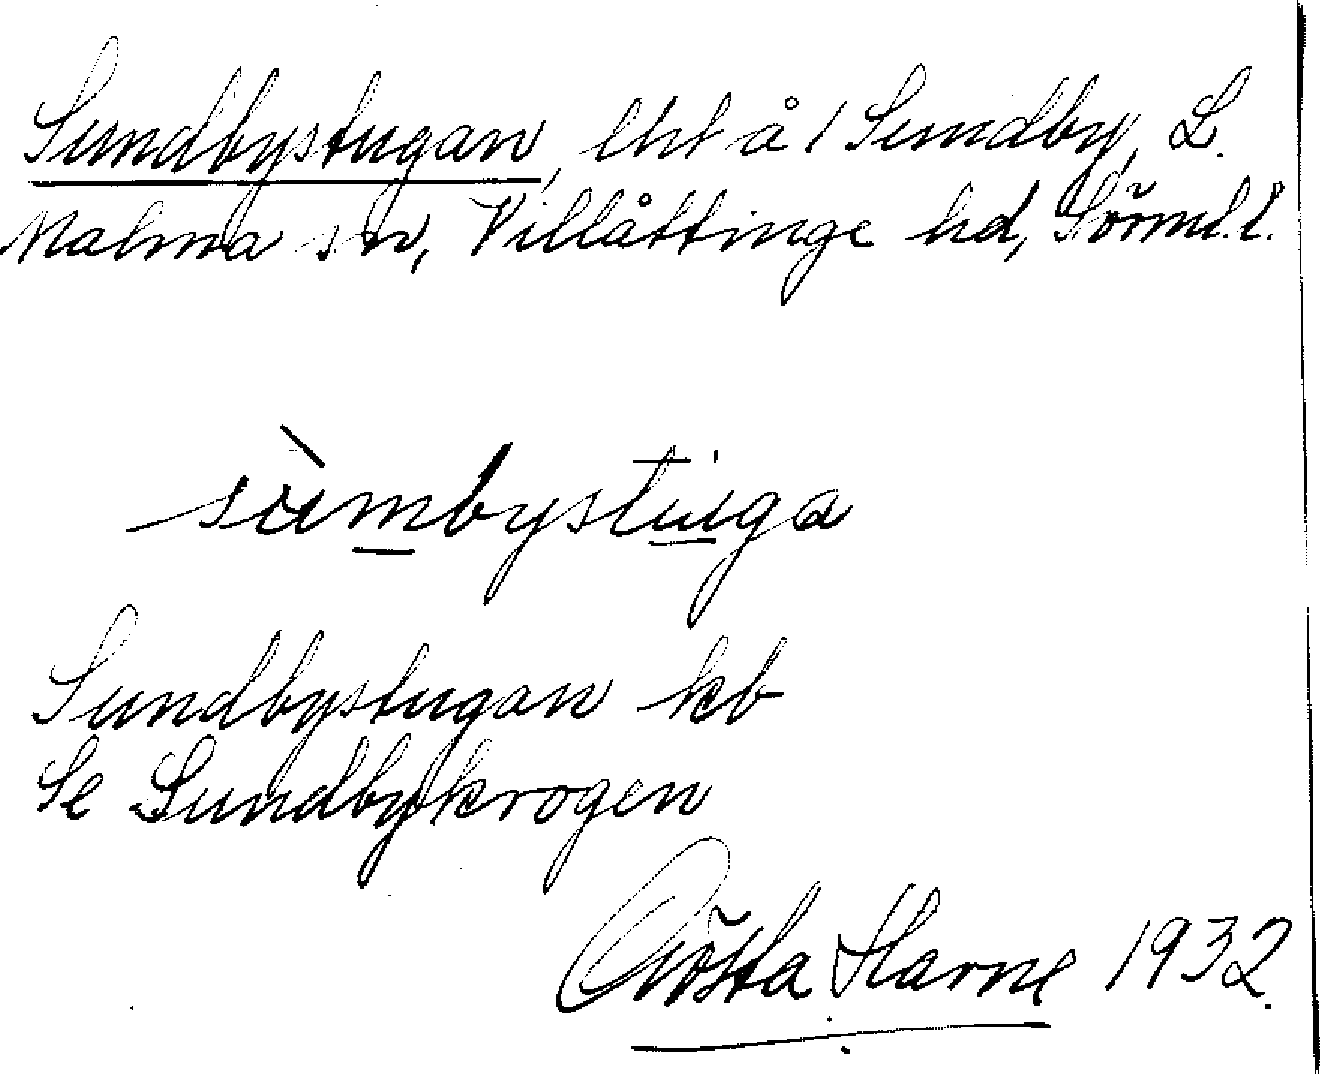 Sundbystugan, lht å 1 Sundby, L.
Malma sn, Villåttinge hd, Sörml. l.
sùmbystuga
Sundbystugan kb
Se Sundbykrogen
Gösta Harne 1932.